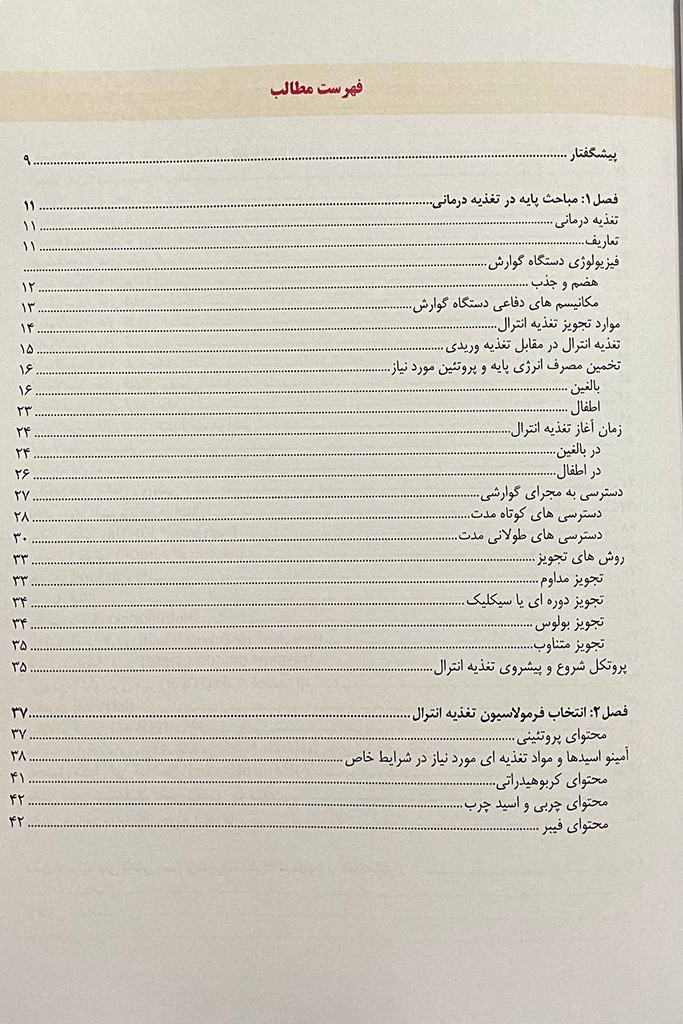 فهرست مطالب
پیشگفتار ۹
فصل ۱: مباحث پایه در تغذیه درمانی ۱۱
تغذیه درمانی ۱۱
تعاریف ۱۱
فیزیولوژی دستگاه گوارش
هضم و جذب ۱۲
مکانیسم های دفاعی دستگاه گوارش ۱۳
موارد تجویز تغذیه انترال ۱۴
تغذیه انترال در مقابل تغذیه وریدی ۱۵
تخمین مصرف انرژی پایه و پروتئین مورد نیاز ۱۶
بالغین ۱۶
اطفال ۲۳
زمان آغاز تغذیه انترال ۲۴
در بالغین ۲۴
در اطفال ۲۶
دسترسی به مجرای گوارشی ۲۷
دسترسی های کوتاه مدت ۲۸
دسترسی های طولانی مدت ۳۰
روش های تجویز ۳۳
تجویز مداوم ۳۳
تجویز دوره ای یا سیکلیک ۳۴
تجویز بولوس ۳۴
تجویز متناوب ۳۵
پروتکل شروع و پیشروی تغذیه انترال ۳۵
فصل ۲: انتخاب فرمولاسیون تغذیه انترال ۳۷
محتوای پروتئینی ۳۷
آمینو اسیدها و مواد تغذیه ای مورد نیاز در شرایط خاص ۳۸
محتوای کربوهیدراتی ۴۱
محتوای چربی و اسید چرب ۴۲
محتوای فیبر ۴۲